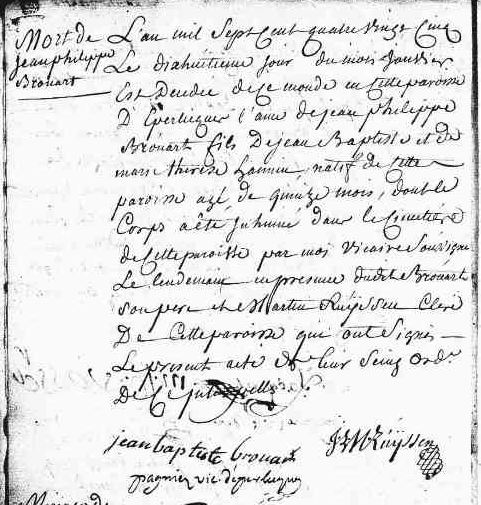 Mort de
jean philippe
Brouart
L'an mil Sept Cent quatre vingt Cinq
Le dixhuitieme jour du mois janvier
Est Decedee de ce monde en Cette paroisse
D'Eperlecques l'ame de jean philippe
Brouart fils De jean Baptiste et de
marie therese natif de Cette
paroisse agé de quinze mois, dont le
Corps a été Inhumé dans le Cimetiere
de Cette paroisse par moi Vicaire Soussigné
Le lendemain en presence dudit Brouart
son pere et Martin Ruyssen Clerc
De Cette paroisse qui ont Signés
Le present acte de leur Seing ord.re
De Ce
jean baptiste brouart
JM Ruyssen
pagniez vic. d'eperlecques